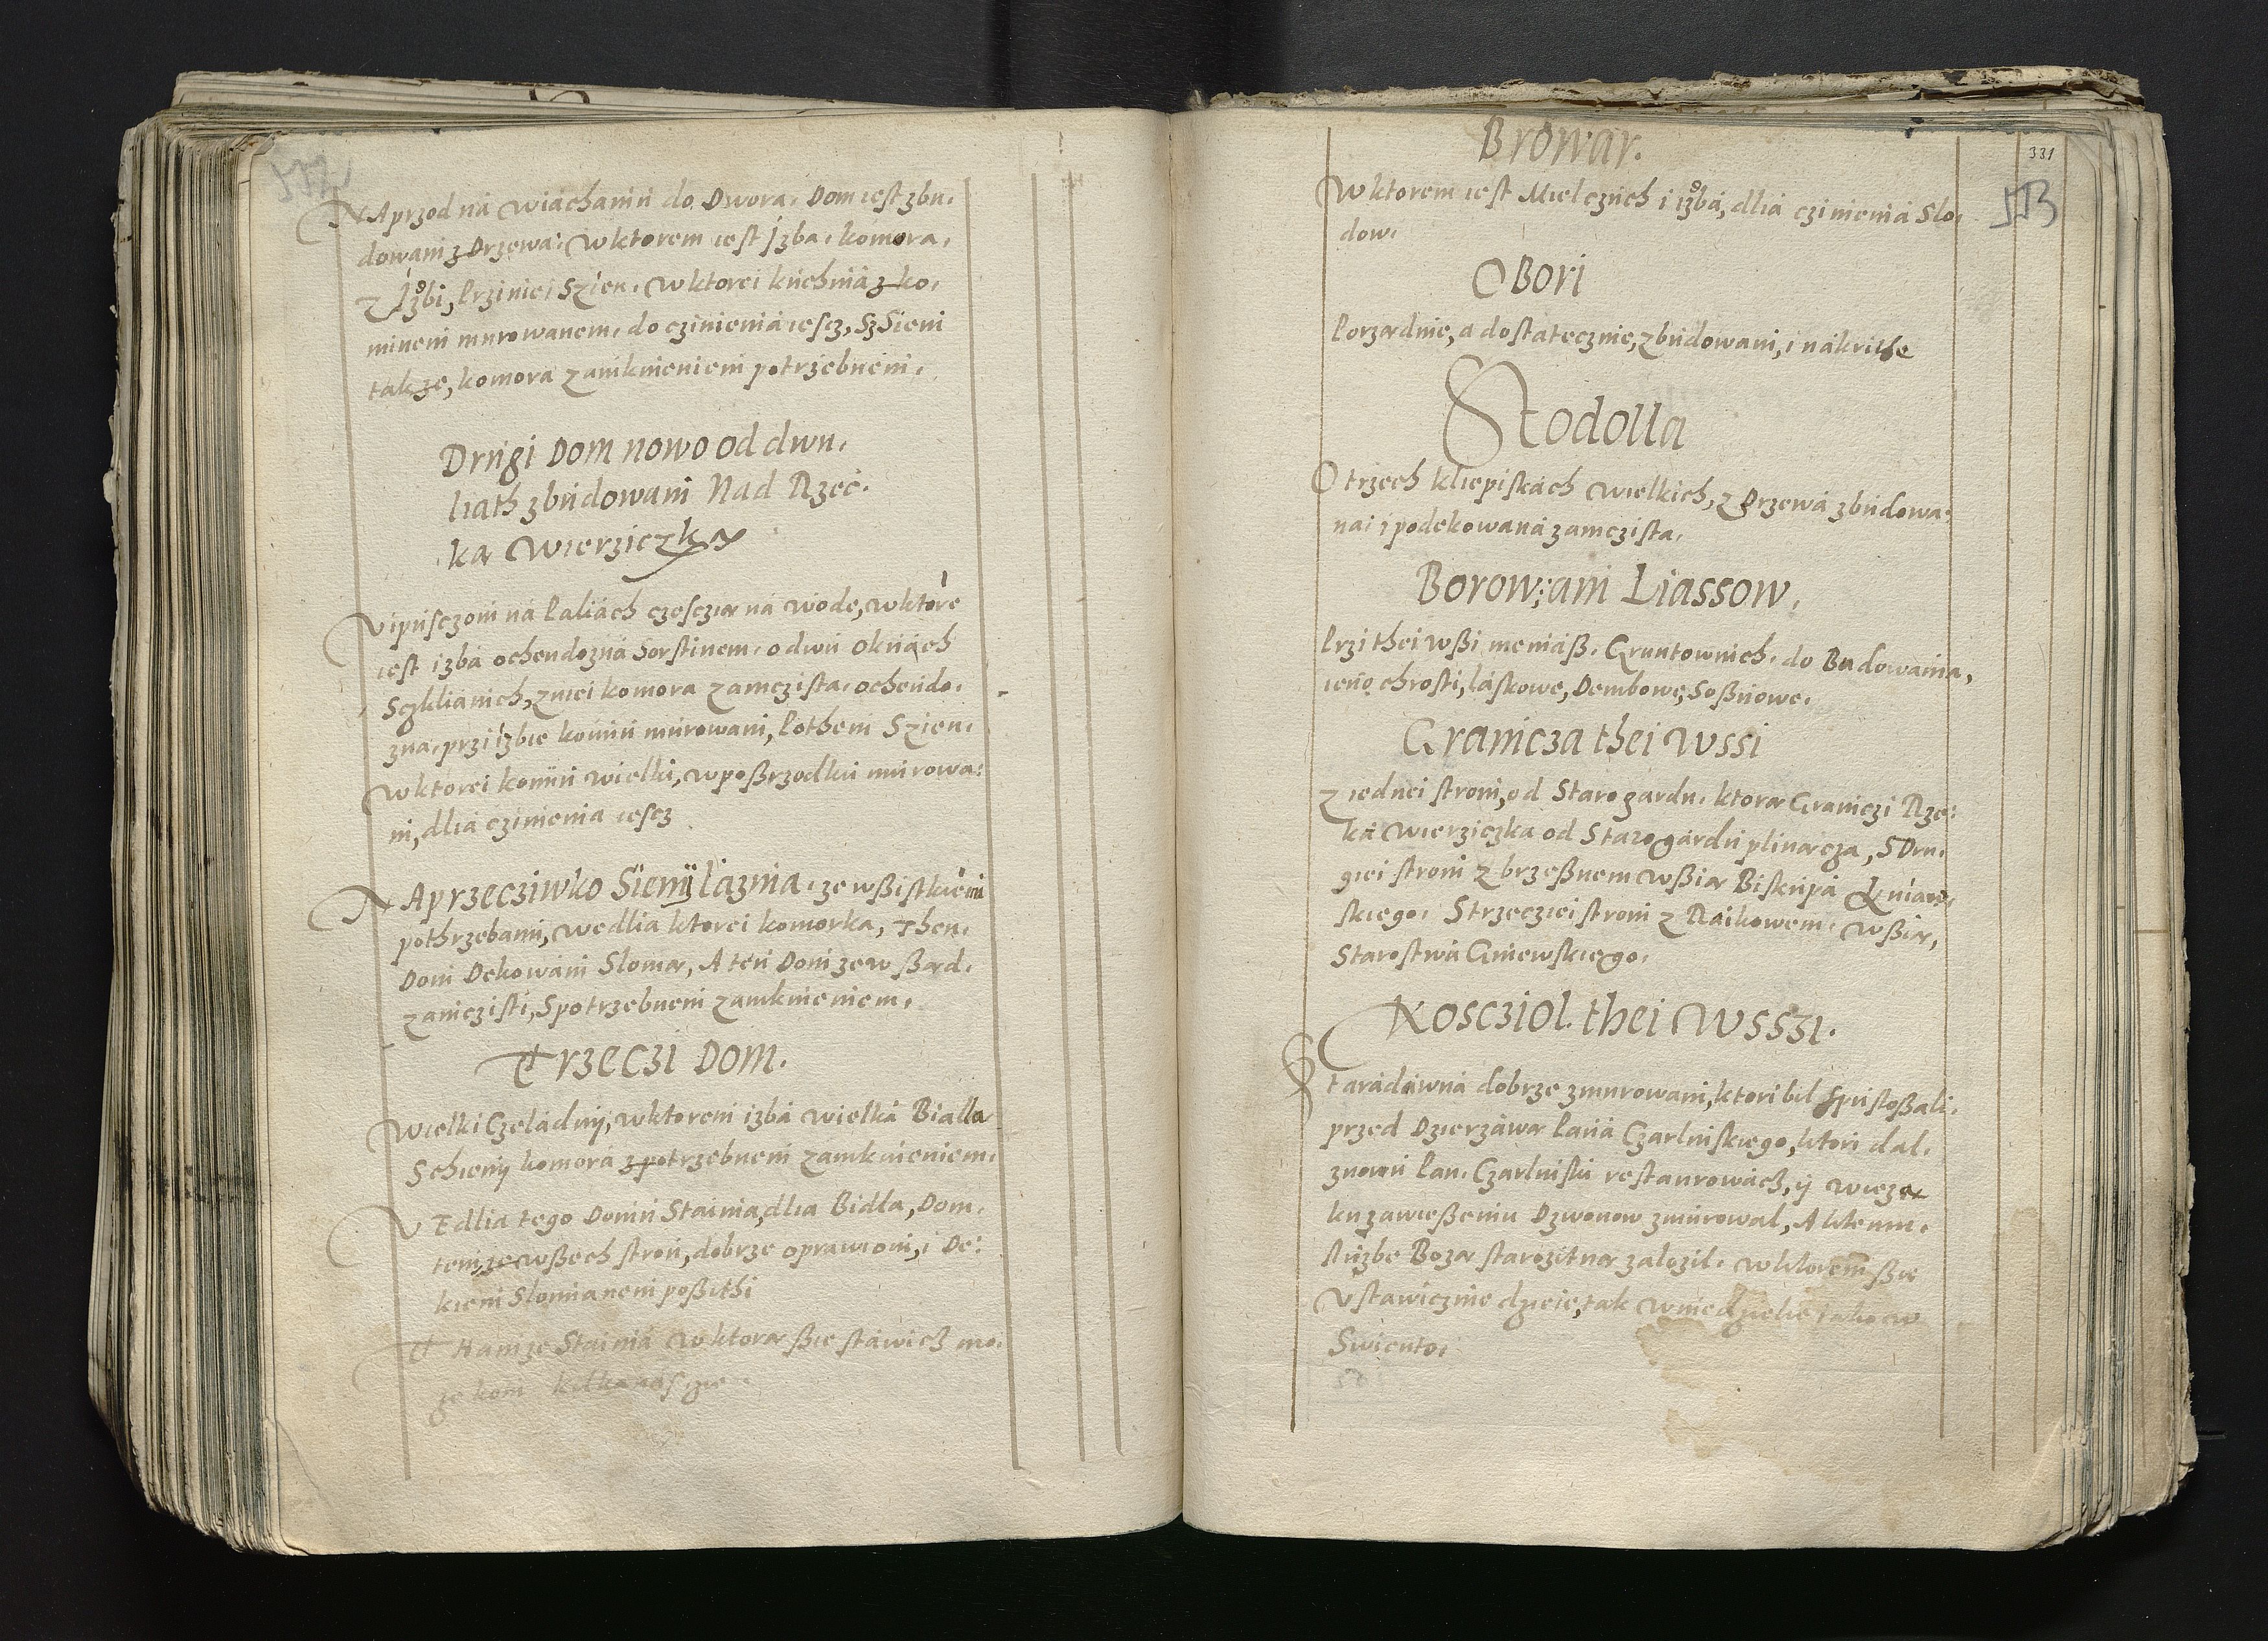 NAprzod na wiachaniu do Dwora. Dom iest zbu,
dowani z Drzewa: Wktorem iest Jzba, komora,
z Jzbi, Przi niei Szien. Wktorei kuchnia z ko,
minem murowanem, do czinienia iescz, Sz Sieni
takze, komora zamknieniem potrzebnem.
Drugi Dom nowo od dwu,
liath zbudowani Nad Rzec.
ka Wierziczka
Vipusczoni na Paliach czescza na wode, wktore
iest izba ochendozna Sorstinem, o dwu oknach
Szklianich, z niei komora zamczista, ochendo,
zna, przi izbie komin murowani, Pothem Szien,
wktorei komin wielki, wposzrzodku murowa:
ni, dlia czinienia iescz
NAprzecziwko Sienij laznia, ze wßistkiemi
pothrzebami, wedlia ktorei komorka, Then,
Dom Dekowani Sloma, A ten Dom zewßad,
zamczisti, Spotrzebnem zamknieniem,
Trzeczi Dom.
Wielki Czeladnij, wktorem izba wielka Bialla
Schienij komora z potrzebnem zamknieniem,
VEdlia tego Domu Stainia, dlia Bidla, Dom,
ten, ze wßech stron, dobrze oprawioni, i De:
kiem Slomianem poßithi
THamze Stainia wktora ßie stawicz mo,
ze koni kilkanascie
331
513
Browar.
Wktorem iest Mielcznch i izba, dlia czinienia Slo,
dow.
OBori
Porzadnie, a dostatecznie, zbudowani, i nakrithe
Stodolla
O trzech kliepiskach Wielkich, z Drzewa zbudowa:
nai i podekowana zamczista,
Borow; ani Liassow,
Przi thei wßi niemaß, Gruntownich, do Budowania,
ieno chrosti, laskowe, Dembowe, Soßnowe.
Granicza thei Wssi
Z iednei stroni, od Starogardu, ktora Graniczi Rze:
ka Wierziczka od Starogardu plinacza, SDru,
giei stroni z brzeßnem wßia Biskupa Kuiaw,
skiego, Strzecziei stroni z Raikowem, wßia,
Starostwa Gniewskiego.
Koscziol thei Wsszi.
Staradawna dobrze zmurowani, ktori bil spustoßali,
przed Dzierzawa Pana Czarlinskiego, ktori dal,
znown Pan, Czarlinski restaurowacz, ij wieza
ku zawießeniu Dzwonow zmurowal, A ktemu,
sluzbe Boza starozitna zalozil, wktorem ßie
Vstawicznie dzieie, tak w niedziele iako w
Swienta,